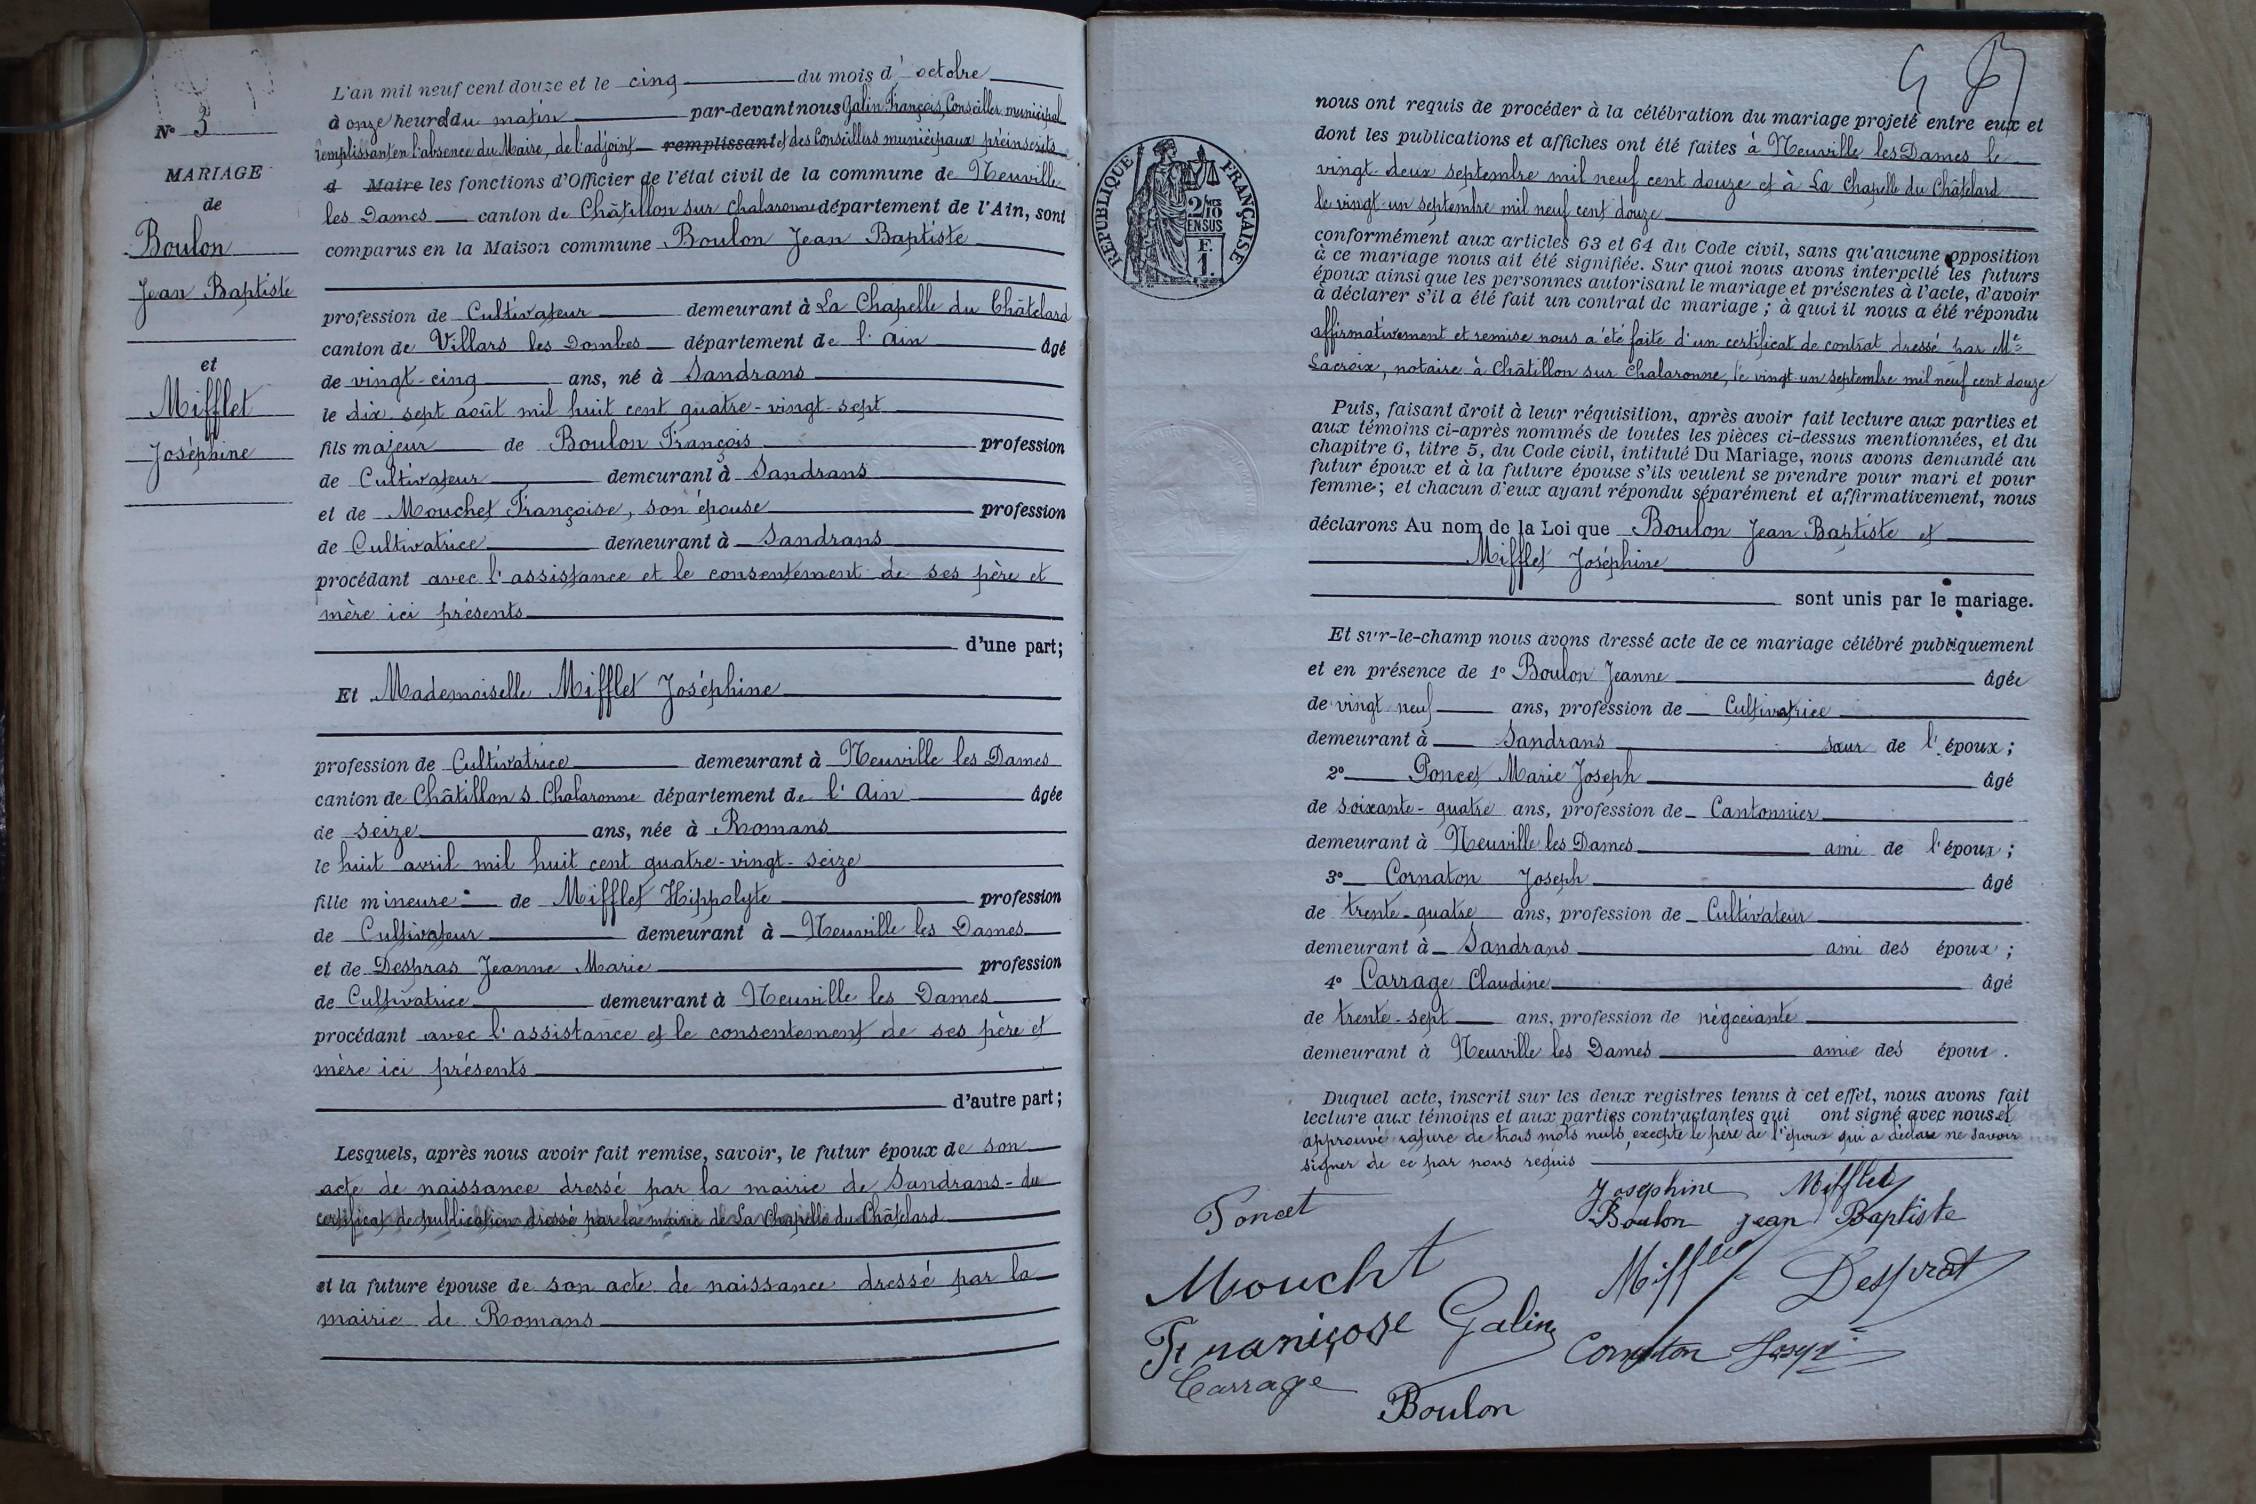 N° 3
MARIAGE
de
Boulon
Jean Baptiste
et
Mifflet
Joséphine
L'an mil neuf cent douze et le cinq du mois d' octobre
à onze heures du matin par-devant nous Galin François, Conseiller municipal
remplissant en l'absence du Maire, de l'adjoint remplissant et des Conseillers municipaux préinscrits
d Maire les fonctions d'Officier de l'état civil de la commune de Neuville
les Dames canton de Châtillon sur Chalaronne département de l'Ain, sont
comparus en la Maison commune Boulon Jean Baptiste
profession de Cultivateur demeurant à La Chapelle du Châtelard
canton de Villars les Dombes département de l'Ain âgé
de vingt-cinq ans, né à Sandrans
le dix sept août mil huit cent quatre-vingt-sept
fils majeur de Boulon François profession
de Cultivateur demeurant à Sandrans
et de Mouchet Françoise, son épouse profession
de Cultivatrice demeurant à Sandrans
procédant avec l'assistance et le consentement de ses père et
mère ici présents
d'une part;
Et Mademoiselle Mifflet Joséphine
profession de Cultivatrice demeurant à Neuville les Dames
canton de Châtillon s. Chalaronne département de l'Ain âgée
de seize ans, née à Romans
le huit avril mil huit cent quatre-vingt-seize
fille mineure de Mifflet Hippolyte profession
de Cultivateur demeurant à Neuville les Dames
et de Despras Jeanne Marie profession
de Cultivatrice demeurant à Neuville les Dames
procédant avec l'assistance et le consentement de ses père et
mère ici présents
d'autre part;
Lesquels, après nous avoir fait remise, savoir, le futur époux de son
acte de naissance dressé par la mairie de Sandrans - du
certificat de publication dressé par la mairie de La Chapelle du Châtelard
et la future épouse de son acte de naissance dressé par la
mairie de Romans
RÉPUBLIQUE FRANÇAISE
2/10
EN SUS
F.
1.
nous ont requis de procéder à la célébration du mariage projeté entre eux et
dont les publications et affiches ont été faites à Neuville les Dames le
vingt-deux septembre mil neuf cent douze et à La Chapelle du Châtelard
le vingt-un septembre mil neuf cent douze
conformément aux articles 63 et 64 du Code civil, sans qu'aucune opposition
à ce mariage nous ait été signifiée. Sur quoi nous avons interpellé les futurs
époux ainsi que les personnes autorisant le mariage et présentes à l'acte, d'avoir
à déclarer s'il a été fait un contrat de mariage; à quoi il nous a été répondu
affirmativement et remise nous a été faite d'un certificat de contrat dressé par Me
Lacroix, notaire à Châtillon sur Chalaronne, le vingt un septembre mil neuf cent douze
Puis, faisant droit à leur réquisition, après avoir fait lecture aux parties et
aux témoins ci-après nommés de toutes les pièces ci-dessus mentionnées, et du
chapitre 6, titre 5, du Code civil, intitulé Du Mariage, nous avons demandé au
futur époux et à la future épouse s'ils veulent se prendre pour mari et pour
femme; et chacun d'eux ayant répondu séparément et affirmativement, nous
déclarons Au nom de la Loi que Boulon Jean Baptiste et
Mifflet Joséphine
sont unis par le mariage.
Et sur-le-champ nous avons dressé acte de ce mariage célébré publiquement
et en présence de 1° Boulon Jeanne âgée
de vingt neuf ans, profession de Cultivatrice
demeurant à Sandrans sœur de l'époux;
2° Poncet Marie Joseph âgé
de soixante-quatre ans, profession de Cantonnier
demeurant à Neuville les Dames ami de l'époux;
3° Cornaton Joseph âgé
de trente-quatre ans, profession de Cultivateur
demeurant à Sandrans ami des époux;
4° Carrage Claudine âgé
de trente-sept ans, profession de négociante
demeurant à Neuville les Dames amie des époux.
Duquel acte, inscrit sur les deux registres tenus à cet effet, nous avons fait
lecture aux témoins et aux parties contractantes qui ont signé avec nous et
approuvé rature de trois mots nuls, excepté le père de l'époux qui a déclaré ne savoir
signer de ce par nous requis
Joséphine Mifflet
Poncet Boulon Jean Baptiste
Moucht Mifflet Desprat
Franiçose Galin Cornaton Joseph
Carrage
Boulon